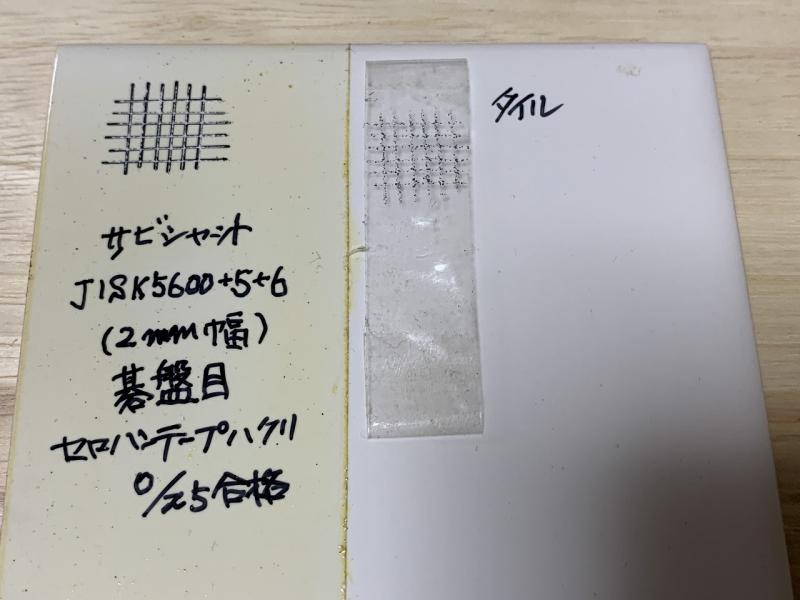 サビシャット
JISK5600-5-6
(2mm幅)
碁盤目
セロハンテープハクリ
0/25合格
タイル